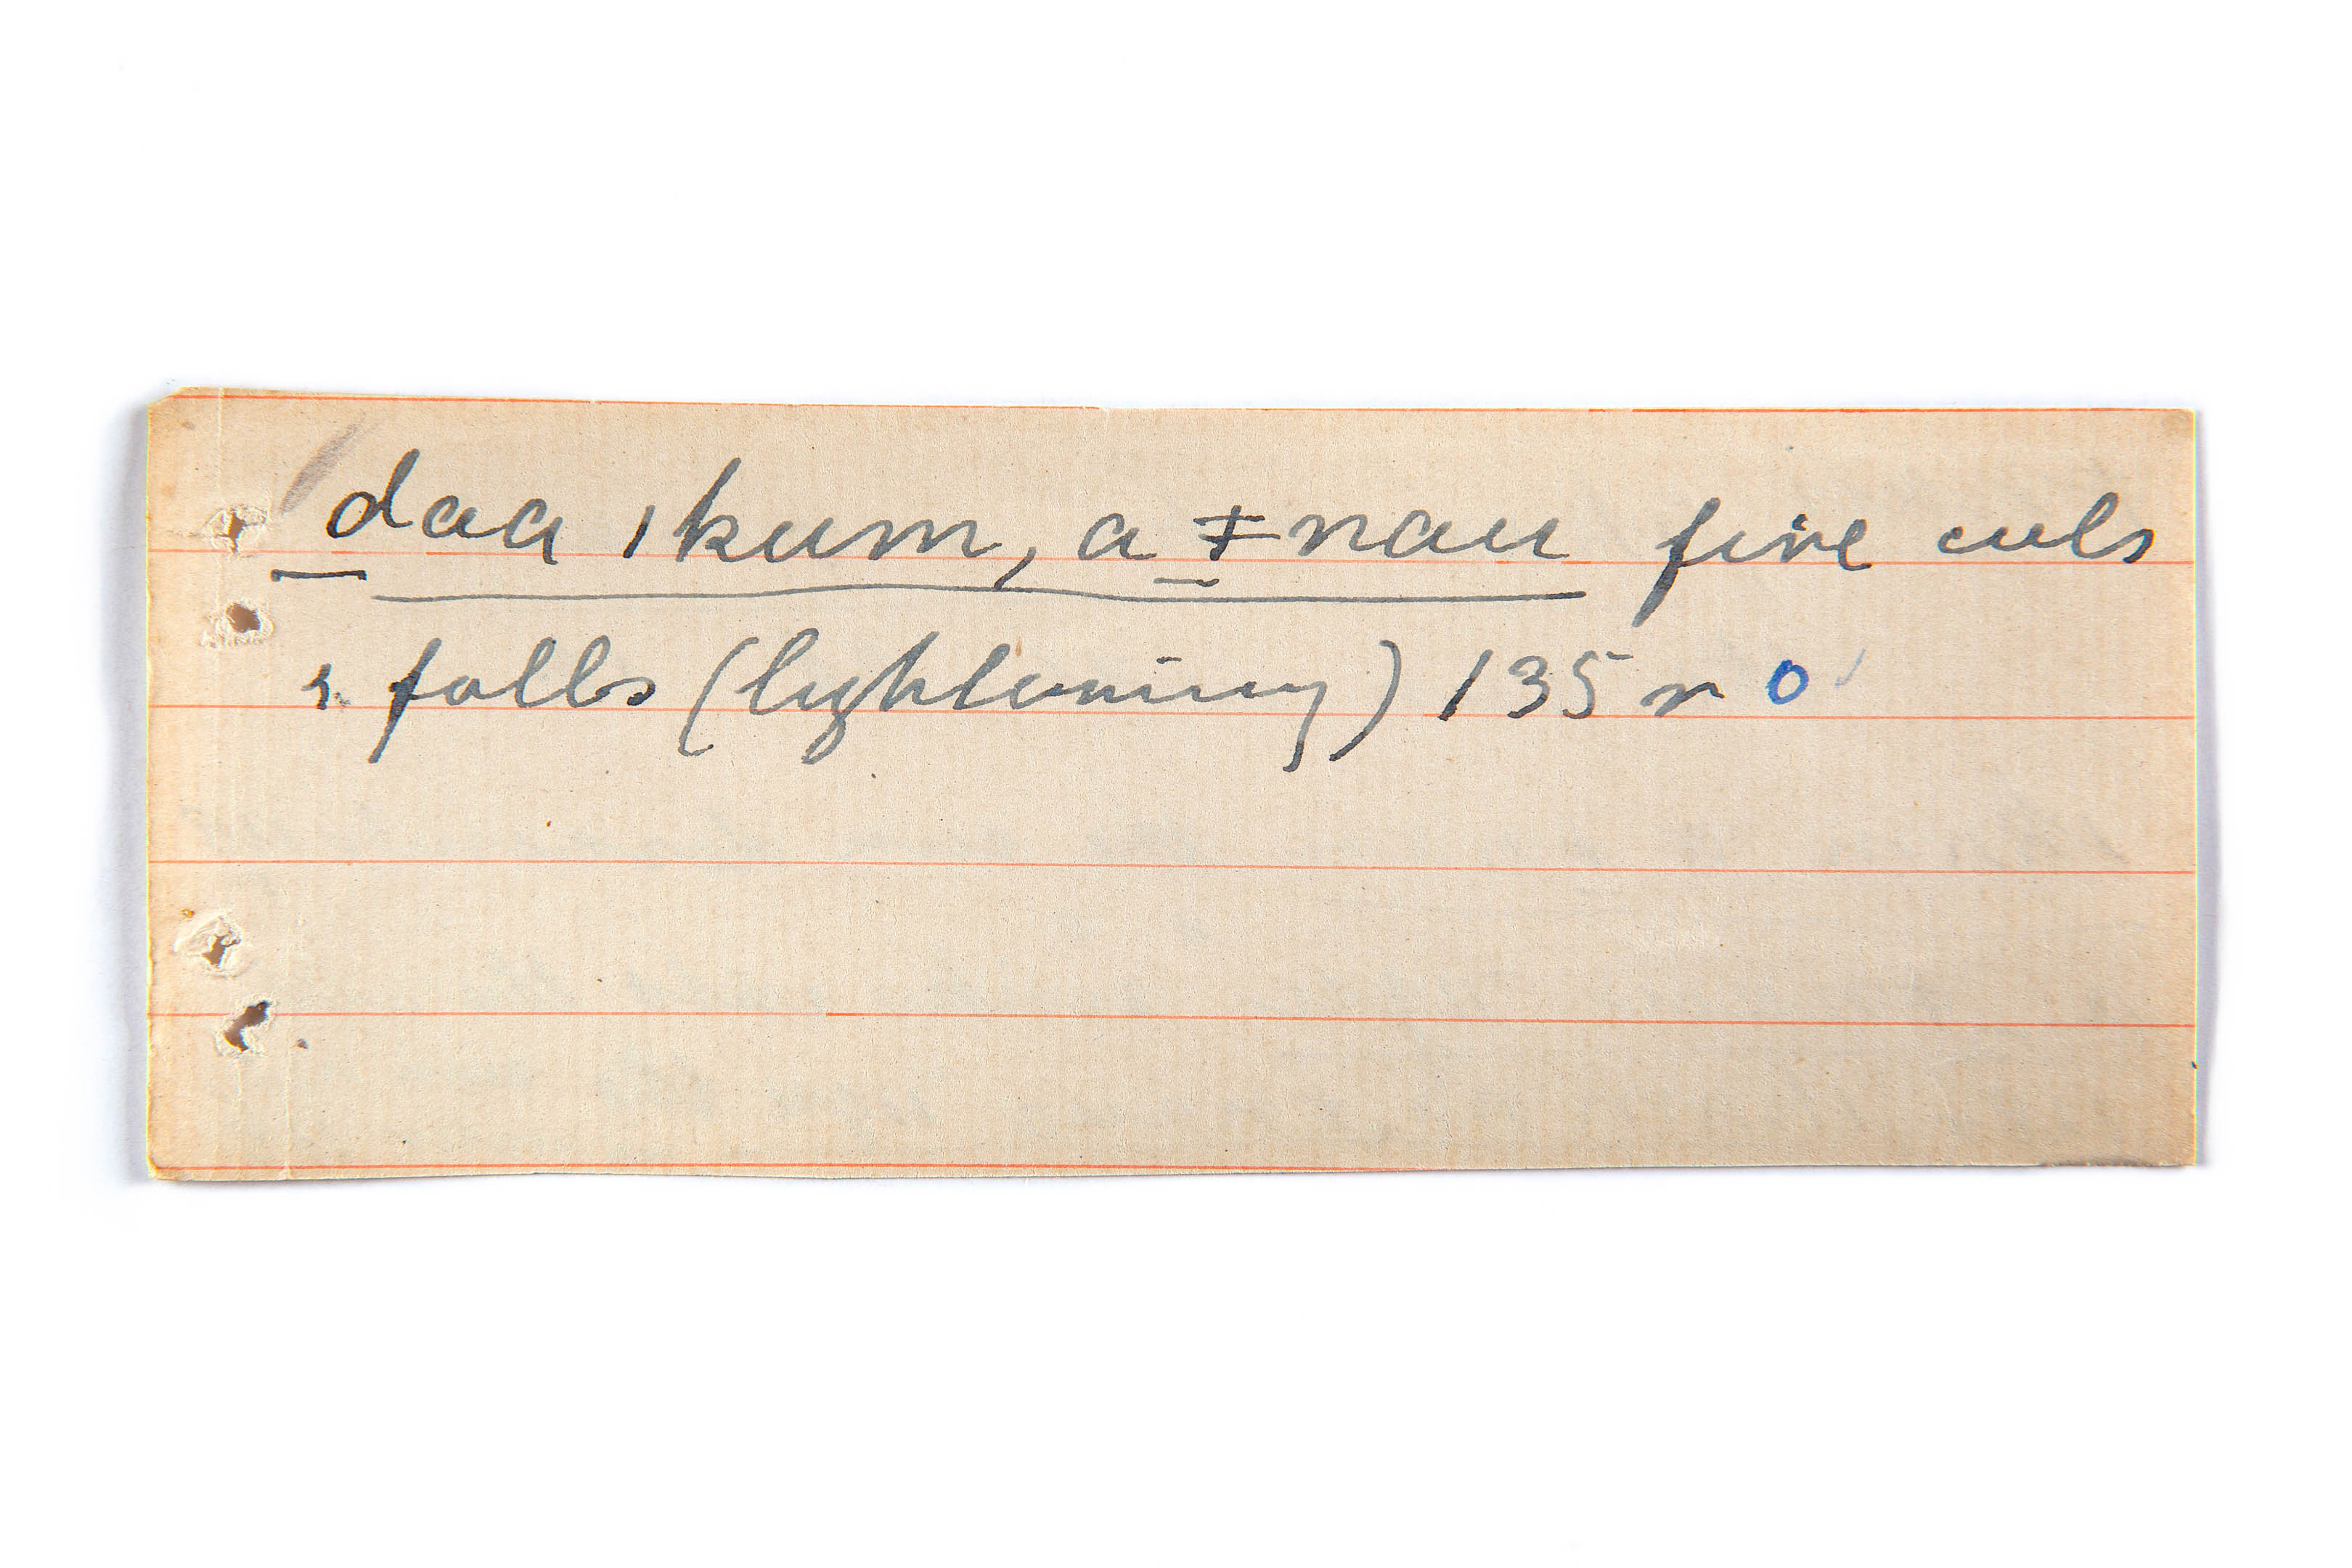 daa ıkum, a ǂnau fire cuts
& falls (lightening) 135 r O